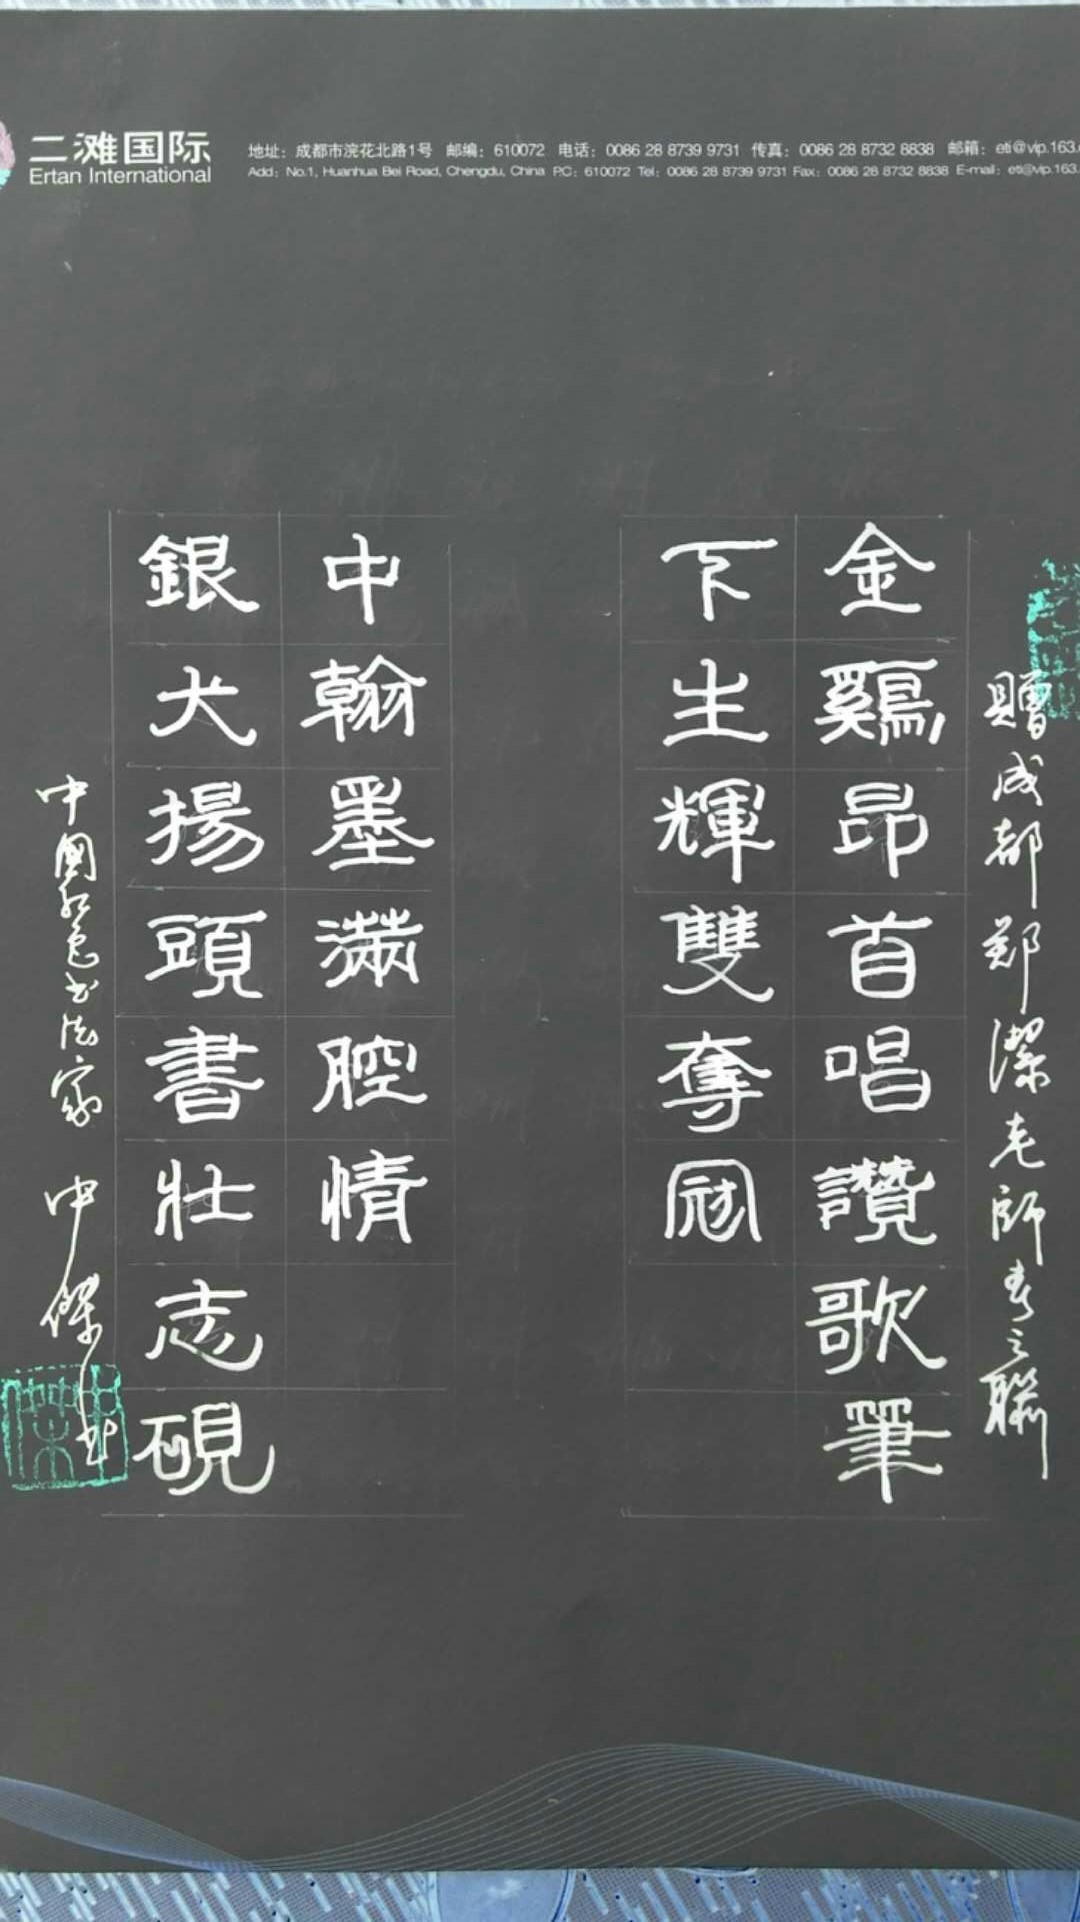 二滩国际
Ertan International
地址：成都市浣花北路1号 邮编：610072 电话：0086 28 8739 9731 传真：0086 28 8732 8838 邮箱：eti@vip.163.
Add：No.1, Huanhua Bei Road, Chengdu, China P.C：610072 Tel：0086 28 8739 9731 Fax：0086 28 8732 8838 E-mail：eti@vip.163.
贈成都郑潔老師春之聯
金鷄昂首唱讚歌筆
下生輝雙奪冠
中翰墨滿腔情
銀犬揚頭書壯志硯
中國红色书法家 中傑书